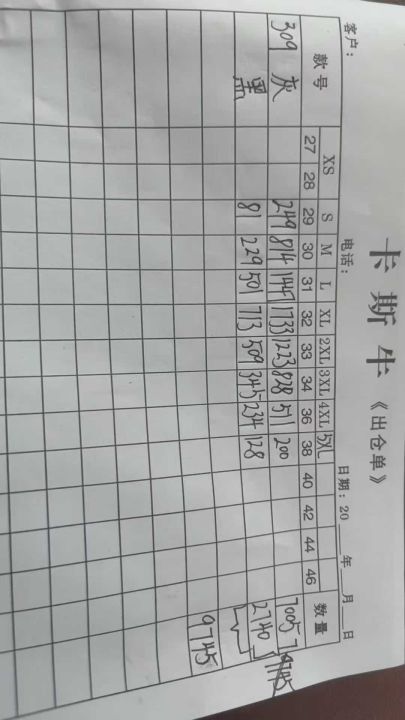 卡斯牛《出仓单》
客户： 电话： 日期：20 年 月 日
款号 XS S M L XL 2XL 3XL 4XL 5XL 数量
27 28 29 30 31 32 33 34 36 38 40 42 44 46
309 灰 249 814 1447 1733 1223 828 511 200 7005 9745
黑 81 229 501 713 509 345 234 128 2740
9745